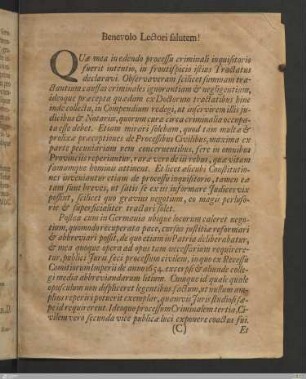 Benevolo Lectori salutem!
QUæ mea in edendo processu criminali inquisitorio
fuerit intentio, in frontispicio istius Tractatus
declaravi. Observaveram scilicet summam tra-
ctantium caussas criminales ignorantiam & negligentiam,
ideoque præcepta quædam ex Doctorum tractatibus hinc
inde collecta, in Compendium redegi, ut inservirem illis ju-
dicibus & Notariis, quorum cura circa criminalia occupa-
ta esse debet. Etenim mirari solebam, quod tam multæ &
prolixæ præceptiones de Processibus Civilibus, maxima ex
parte pecuniariam rem concernentibus, fere in omnibus
Provinciis reperiantur, rara vero de iis rebus, quæ vitam
famamque hominis attinent. Et licet alicubi Constitutio-
nes inveniantur etiam de processu inquisitorio, tamen ita
tam sunt breves, ut satis ex iis informare Judices vix
possint, scilicet quo gravius negotium, eo magis perfuso-
rie & superficialiter tractari solet.
Postea cum in Germania ubique locorum caleret nego-
tium, quomodo recuperata pace, cursus justitiæ reformari
& abbreviari possit, de quo etiam in Patria deliberabatur,
& mea quoque opera ad opus tam necessarium requirere-
tur, publici Juris feci processum civilem, in quo ex Recessu
Constitutum Imperii de anno 1654. excerpsi & aliunde colle-
gi media abbreviandarum litium. Cumque id qualecunque
opusculum non displiceret legentibus factum, ut nullum am-
plius reperiri potuerit exemplar, quamvis Juris studiosi sæ-
pe id requirerent. Ideoque processum Criminalem tertia, Ci-
vilem vero secunda vice publicæ luci exponere coactus fui.
(C)
Et